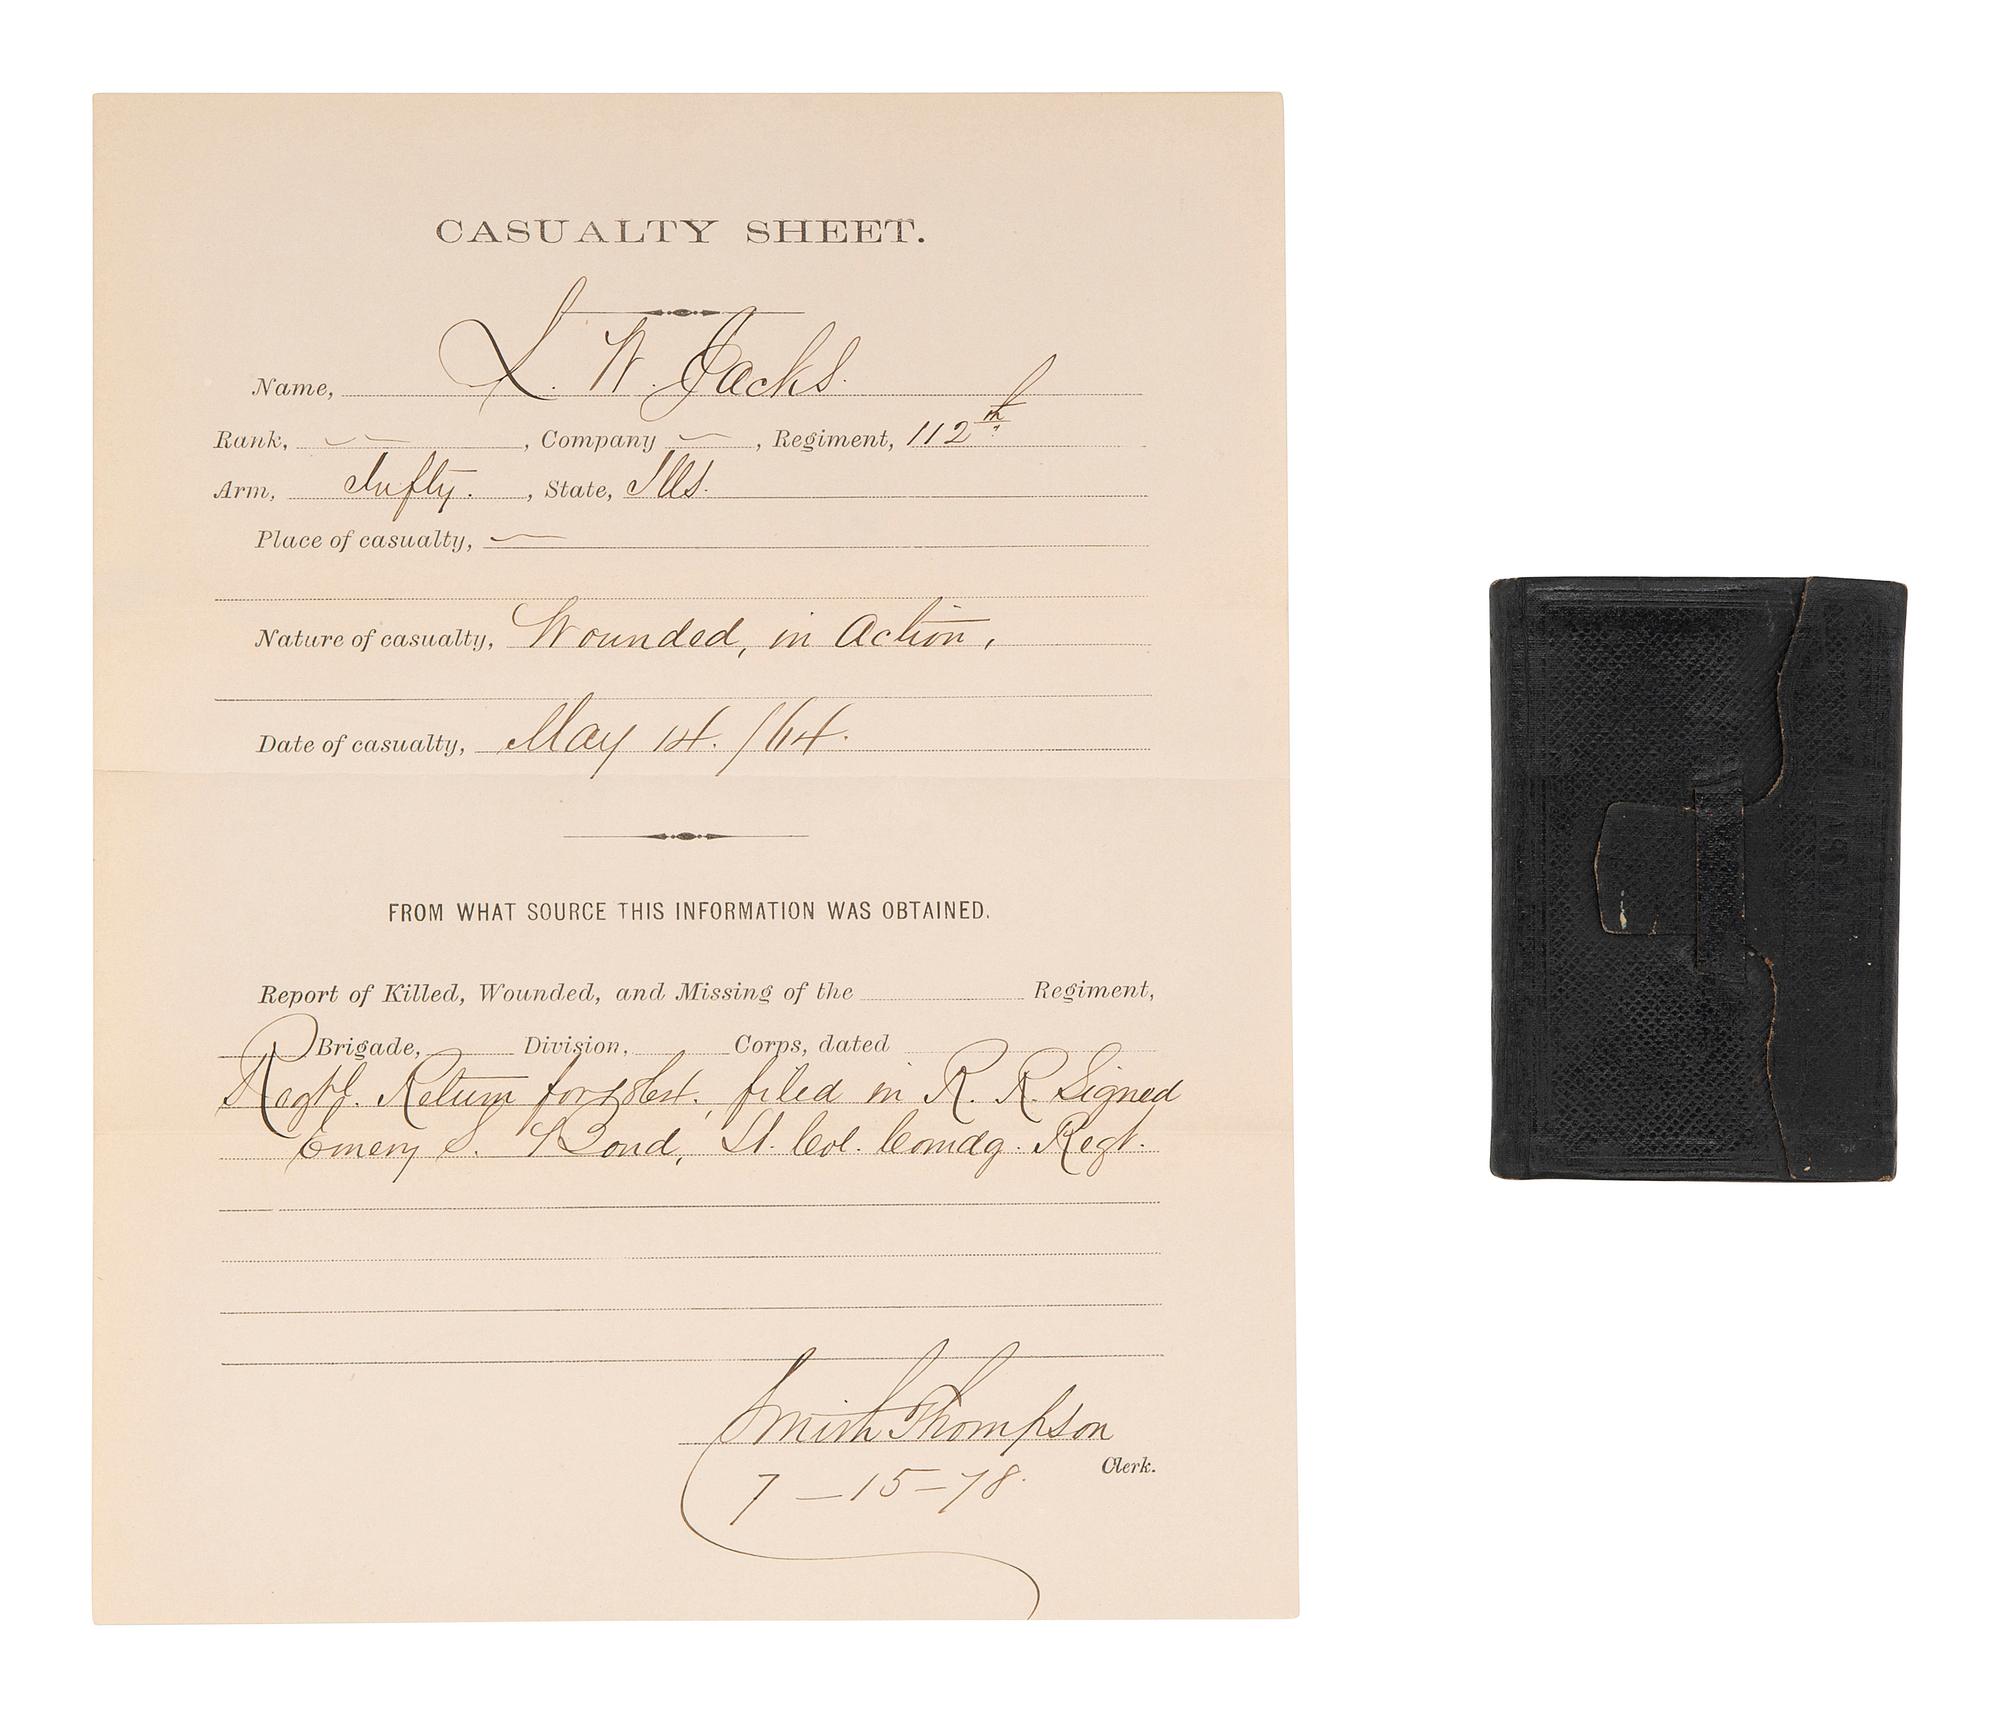 CASUALTY SHEET.
Name, L. W. Jacks.
Rank, — , Company — , Regiment, 112th
Arm, Infty. , State, Ills.
Place of casualty, —
Nature of casualty, Wounded, in Action,
Date of casualty, May 14. /64.
FROM WHAT SOURCE THIS INFORMATION WAS OBTAINED.
Report of Killed, Wounded, and Missing of the Regiment,
Brigade, Division, Corps, dated
Regtl. Return for filed in R. R. Signed
Emery S. Bond, Lt. Col. Comdg. Regt.
Smith Thompson
Clerk.
7 — 15 — 78.